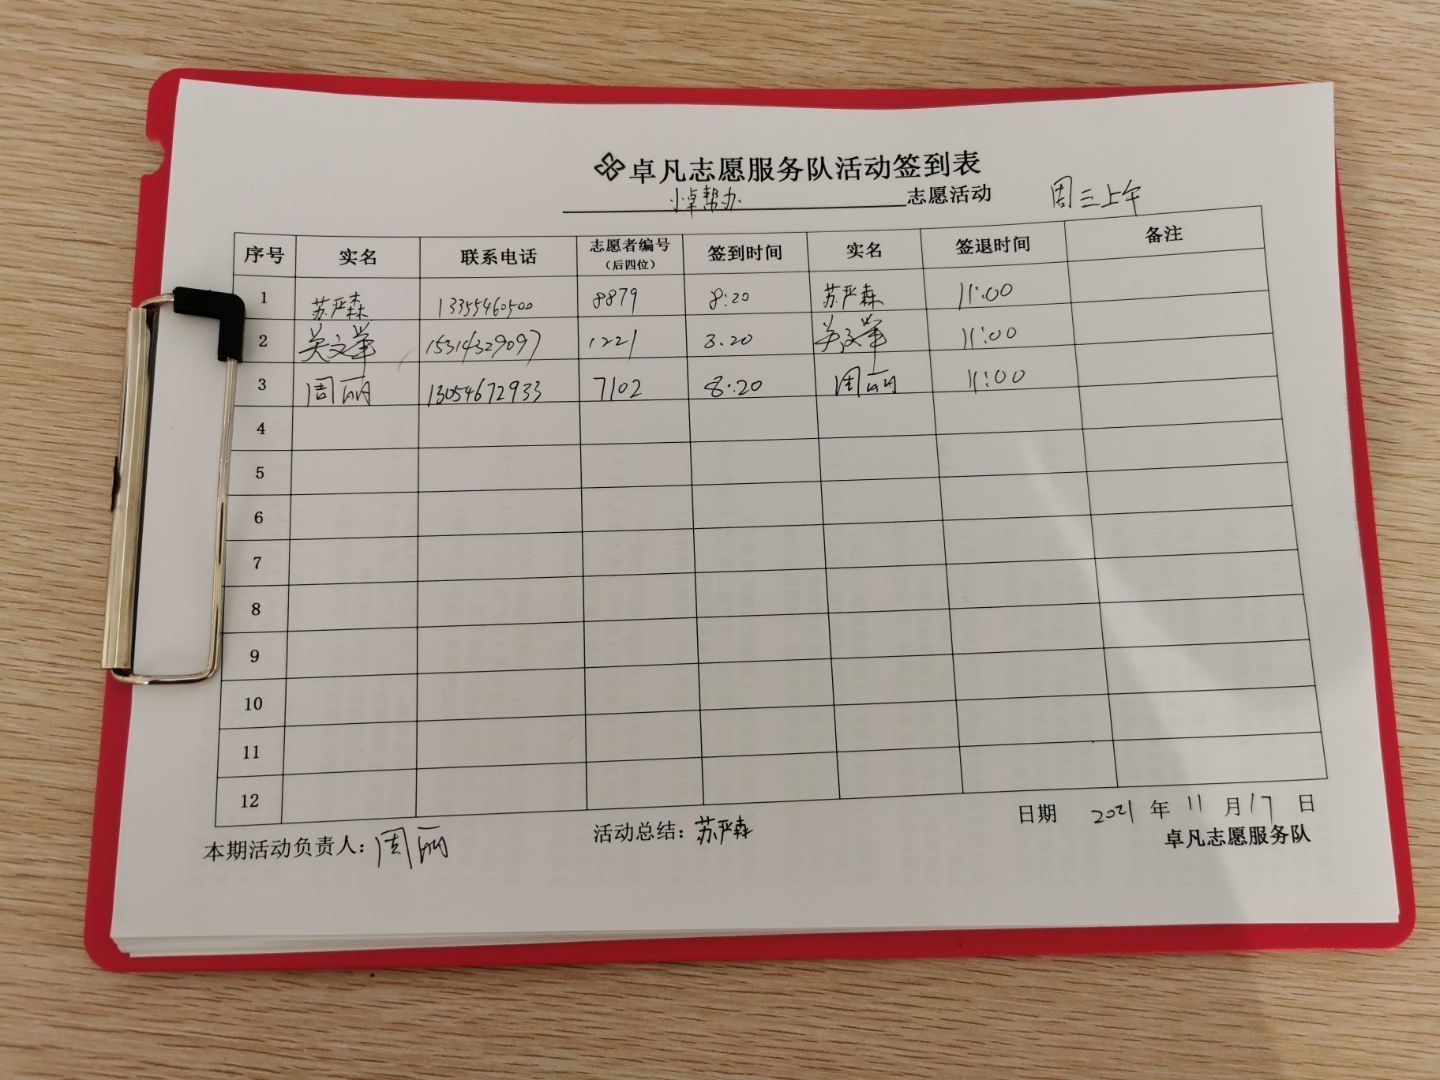 卓凡志愿服务队活动签到表
小卓帮办 志愿活动 周三上午
序号 实名 联系电话 志愿者编号(后四位) 签到时间 实名 签退时间 备注
1 苏严森 13355460500 8879 8:20 苏严森 11:00
2 吴文举 15314329097 1221 8.20 吴文举 11:00
3 周丽 13054672933 7102 8:20 周丽 11:00
4
5
6
7
8
9
10
11
12
本期活动负责人:周丽 活动总结:苏严森 日期 2021 年 11 月 17 日
卓凡志愿服务队